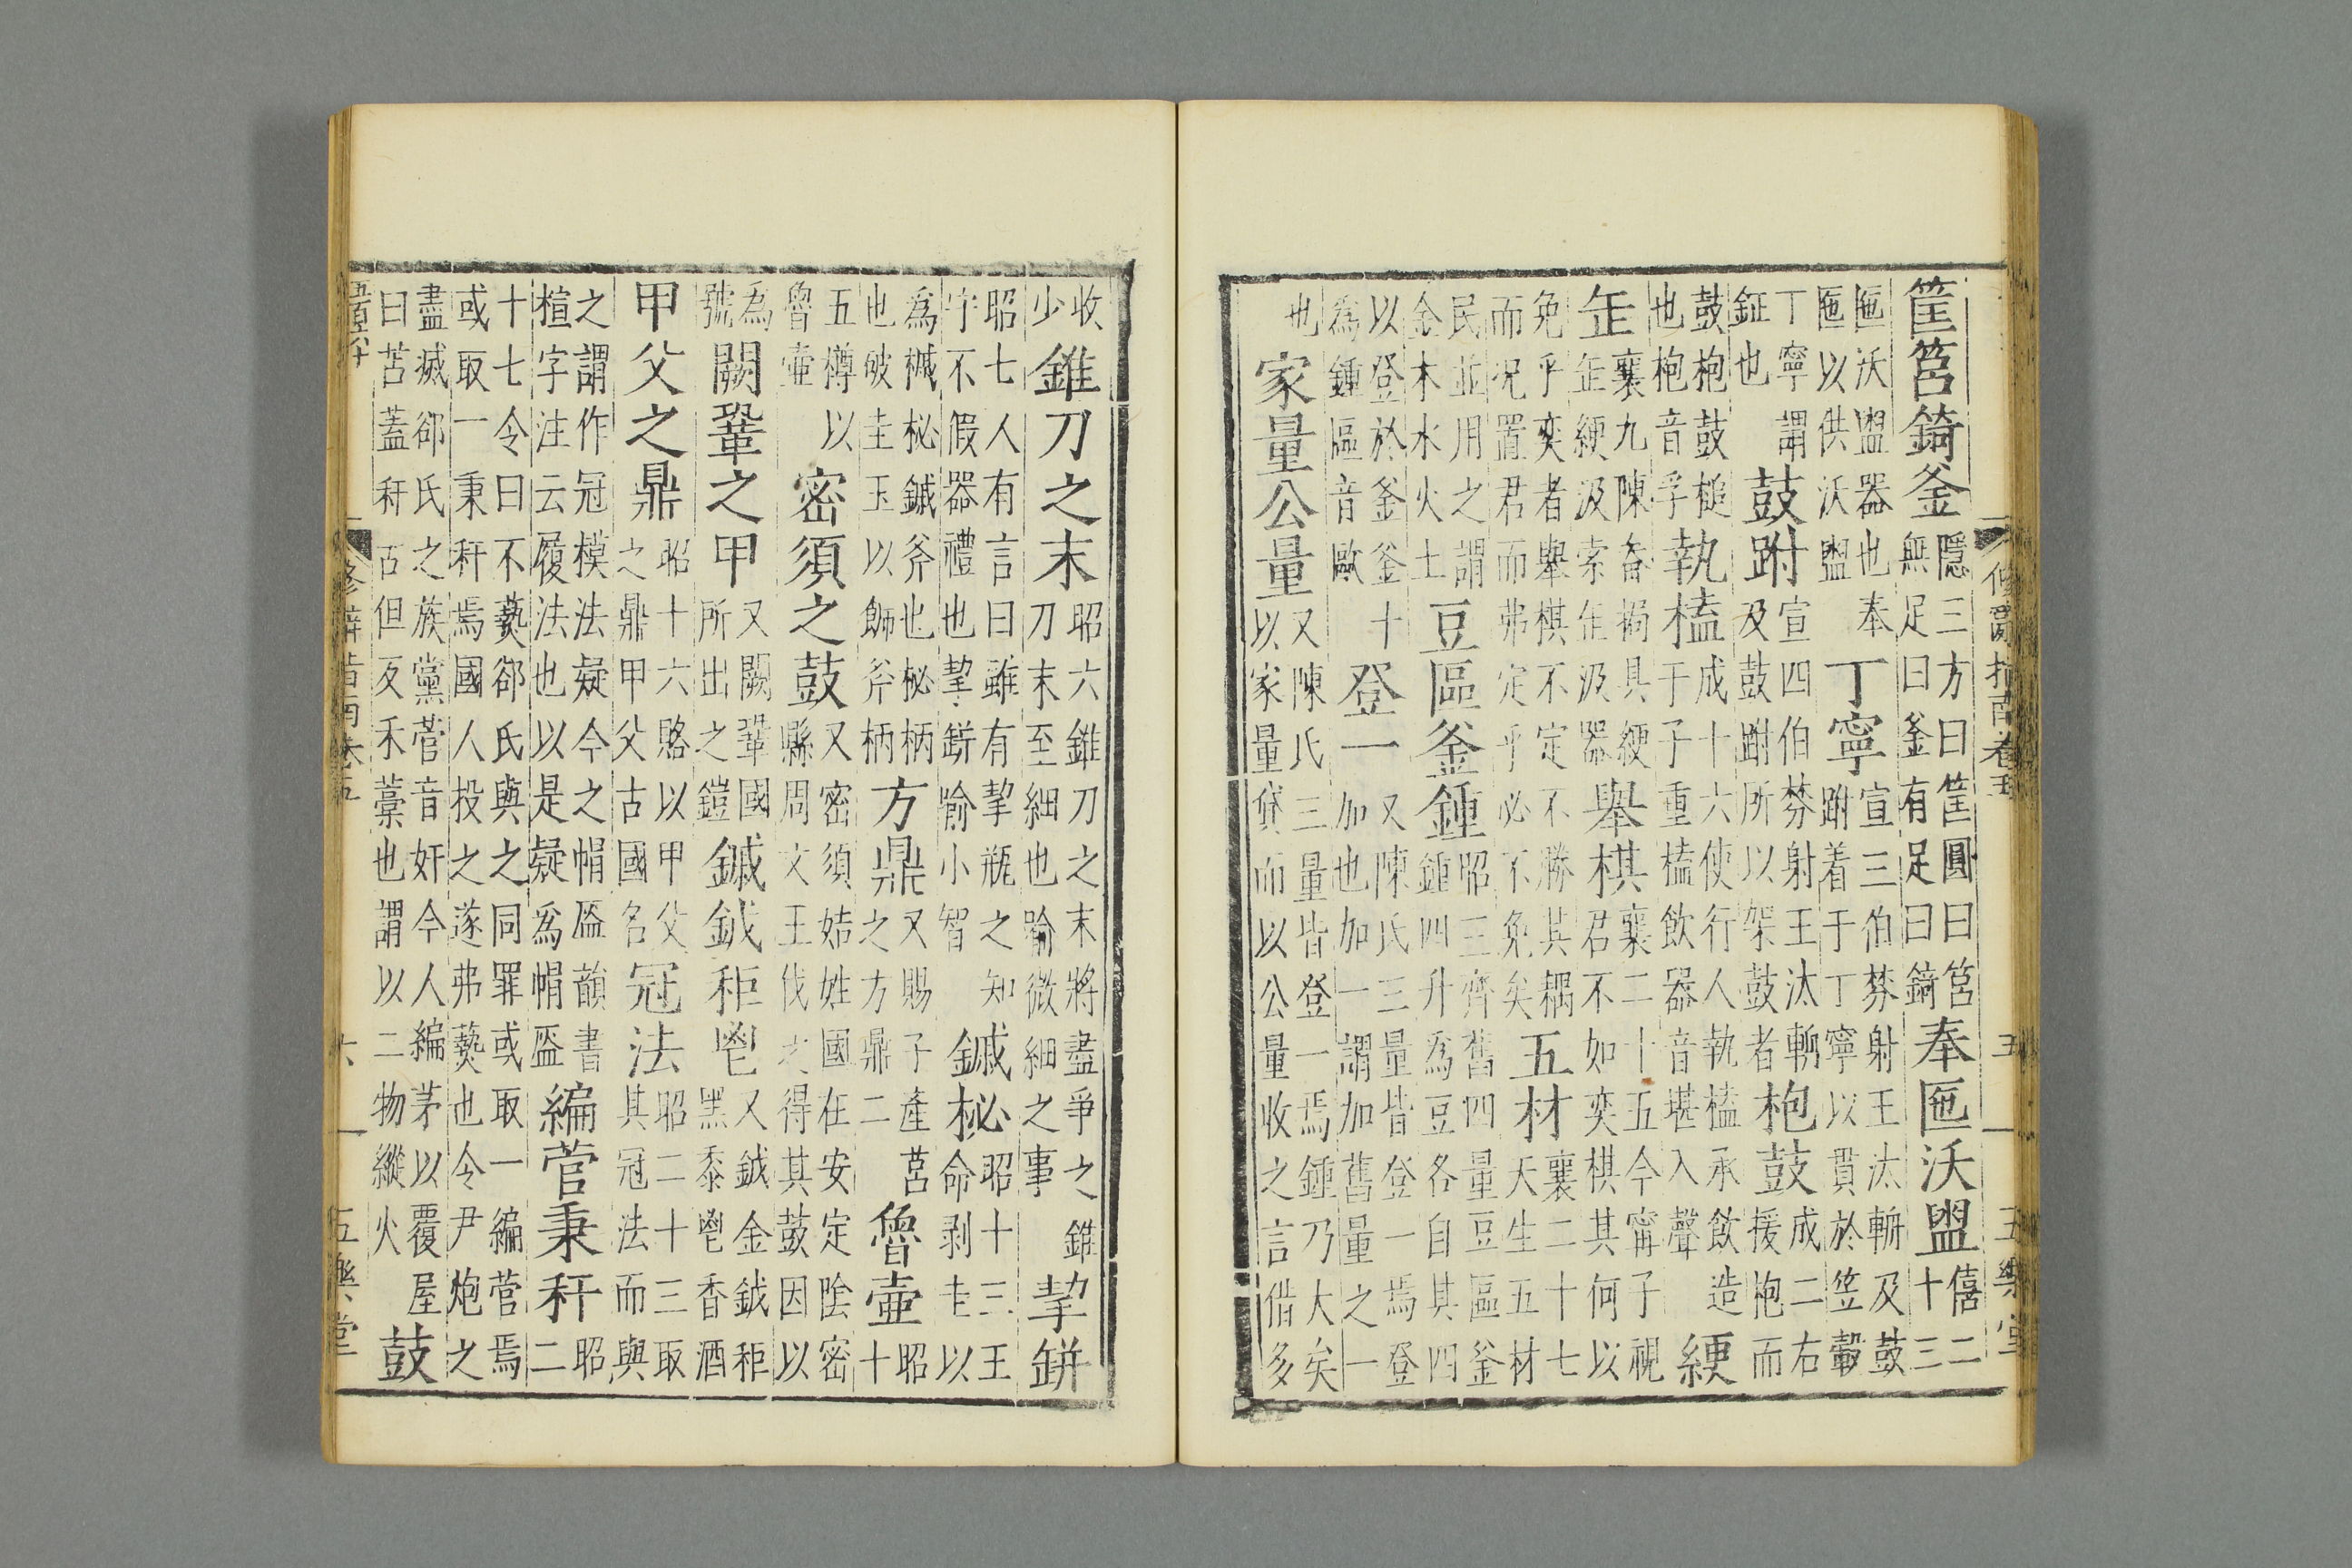 修辭指南卷五 五 五樂堂
筐筥錡釜 隱三方曰筐圓曰筥無足曰釜有足曰錡 奉匜沃盥 僖二十三
匜沃盥器也奉匜以供沃盥 丁寧 宣三伯棼射王汰輈及鼓跗着于丁寧以貫於笠轂
丁寧謂鉦也 鼓跗 宣四伯棼射王汰輈及鼓跗所以架鼓者 枹鼓 成二右援枹而
鼓枹鼓槌也枹音孚 執榼 成十六使行人執榼承飲造于子重榼飲器音堪入聲 綆
缶 襄九陳畚挶具綆缶綆汲索缶汲器 舉棋 襄二十五今甯子視君不如奕棋其何以
免乎奕者舉棋不定不勝其耦而况置君而弗定乎必不免矣 五材 襄二十七天生五材
民並用之謂金木水火土 豆區釜鍾 昭三齊舊四量豆區釜鍾四升為豆各自其四
以登於釜釜十為鍾區音歐 登一 又陳氏三量皆登一焉登加也加一謂加舊量之一
也 家量公量 又陳氏三量皆登一焉鍾乃大矣以家量貸而以公量收之言借多
收少 錐刀之末 昭六錐刀之末將盡爭之錐刀末至細也喻微細之事 挈缾
昭七人有言曰雖有挈瓶之知守不假器禮也挈缾喻小智 鏚柲 昭十三王命剥圭以
為楲柲鏚斧也柲柄也破圭玉以飾斧柄 方鼎 又賜子產莒之方鼎二 魯壺 昭十
五樽以魯壷 密須之鼓 又密須姞姓國在安定陰密縣周文王伐之得其鼓因以
為號 闕鞏之甲 又闕鞏國所出之鎧 鏚鉞秬鬯 又鉞金鉞秬黑黍鬯香酒
甲父之鼎 昭十六賂以甲父之鼎甲父古國名 冠法 昭二十三取其冠法而與
之謂作冠模法疑今之帽盔韻書楦字注云履法也以是疑為帽盔 編菅秉秆 昭二
十七令曰不爇郤氏與之同罪或取一編菅焉或取一秉秆焉國人投之遂弗爇也令尹炮之
盡滅郤氏之族黨菅音奸今人編茅以覆屋曰苫蓋秆古但反禾藁也謂以二物縱火 鼓
修辭指南卷五 六 五樂堂